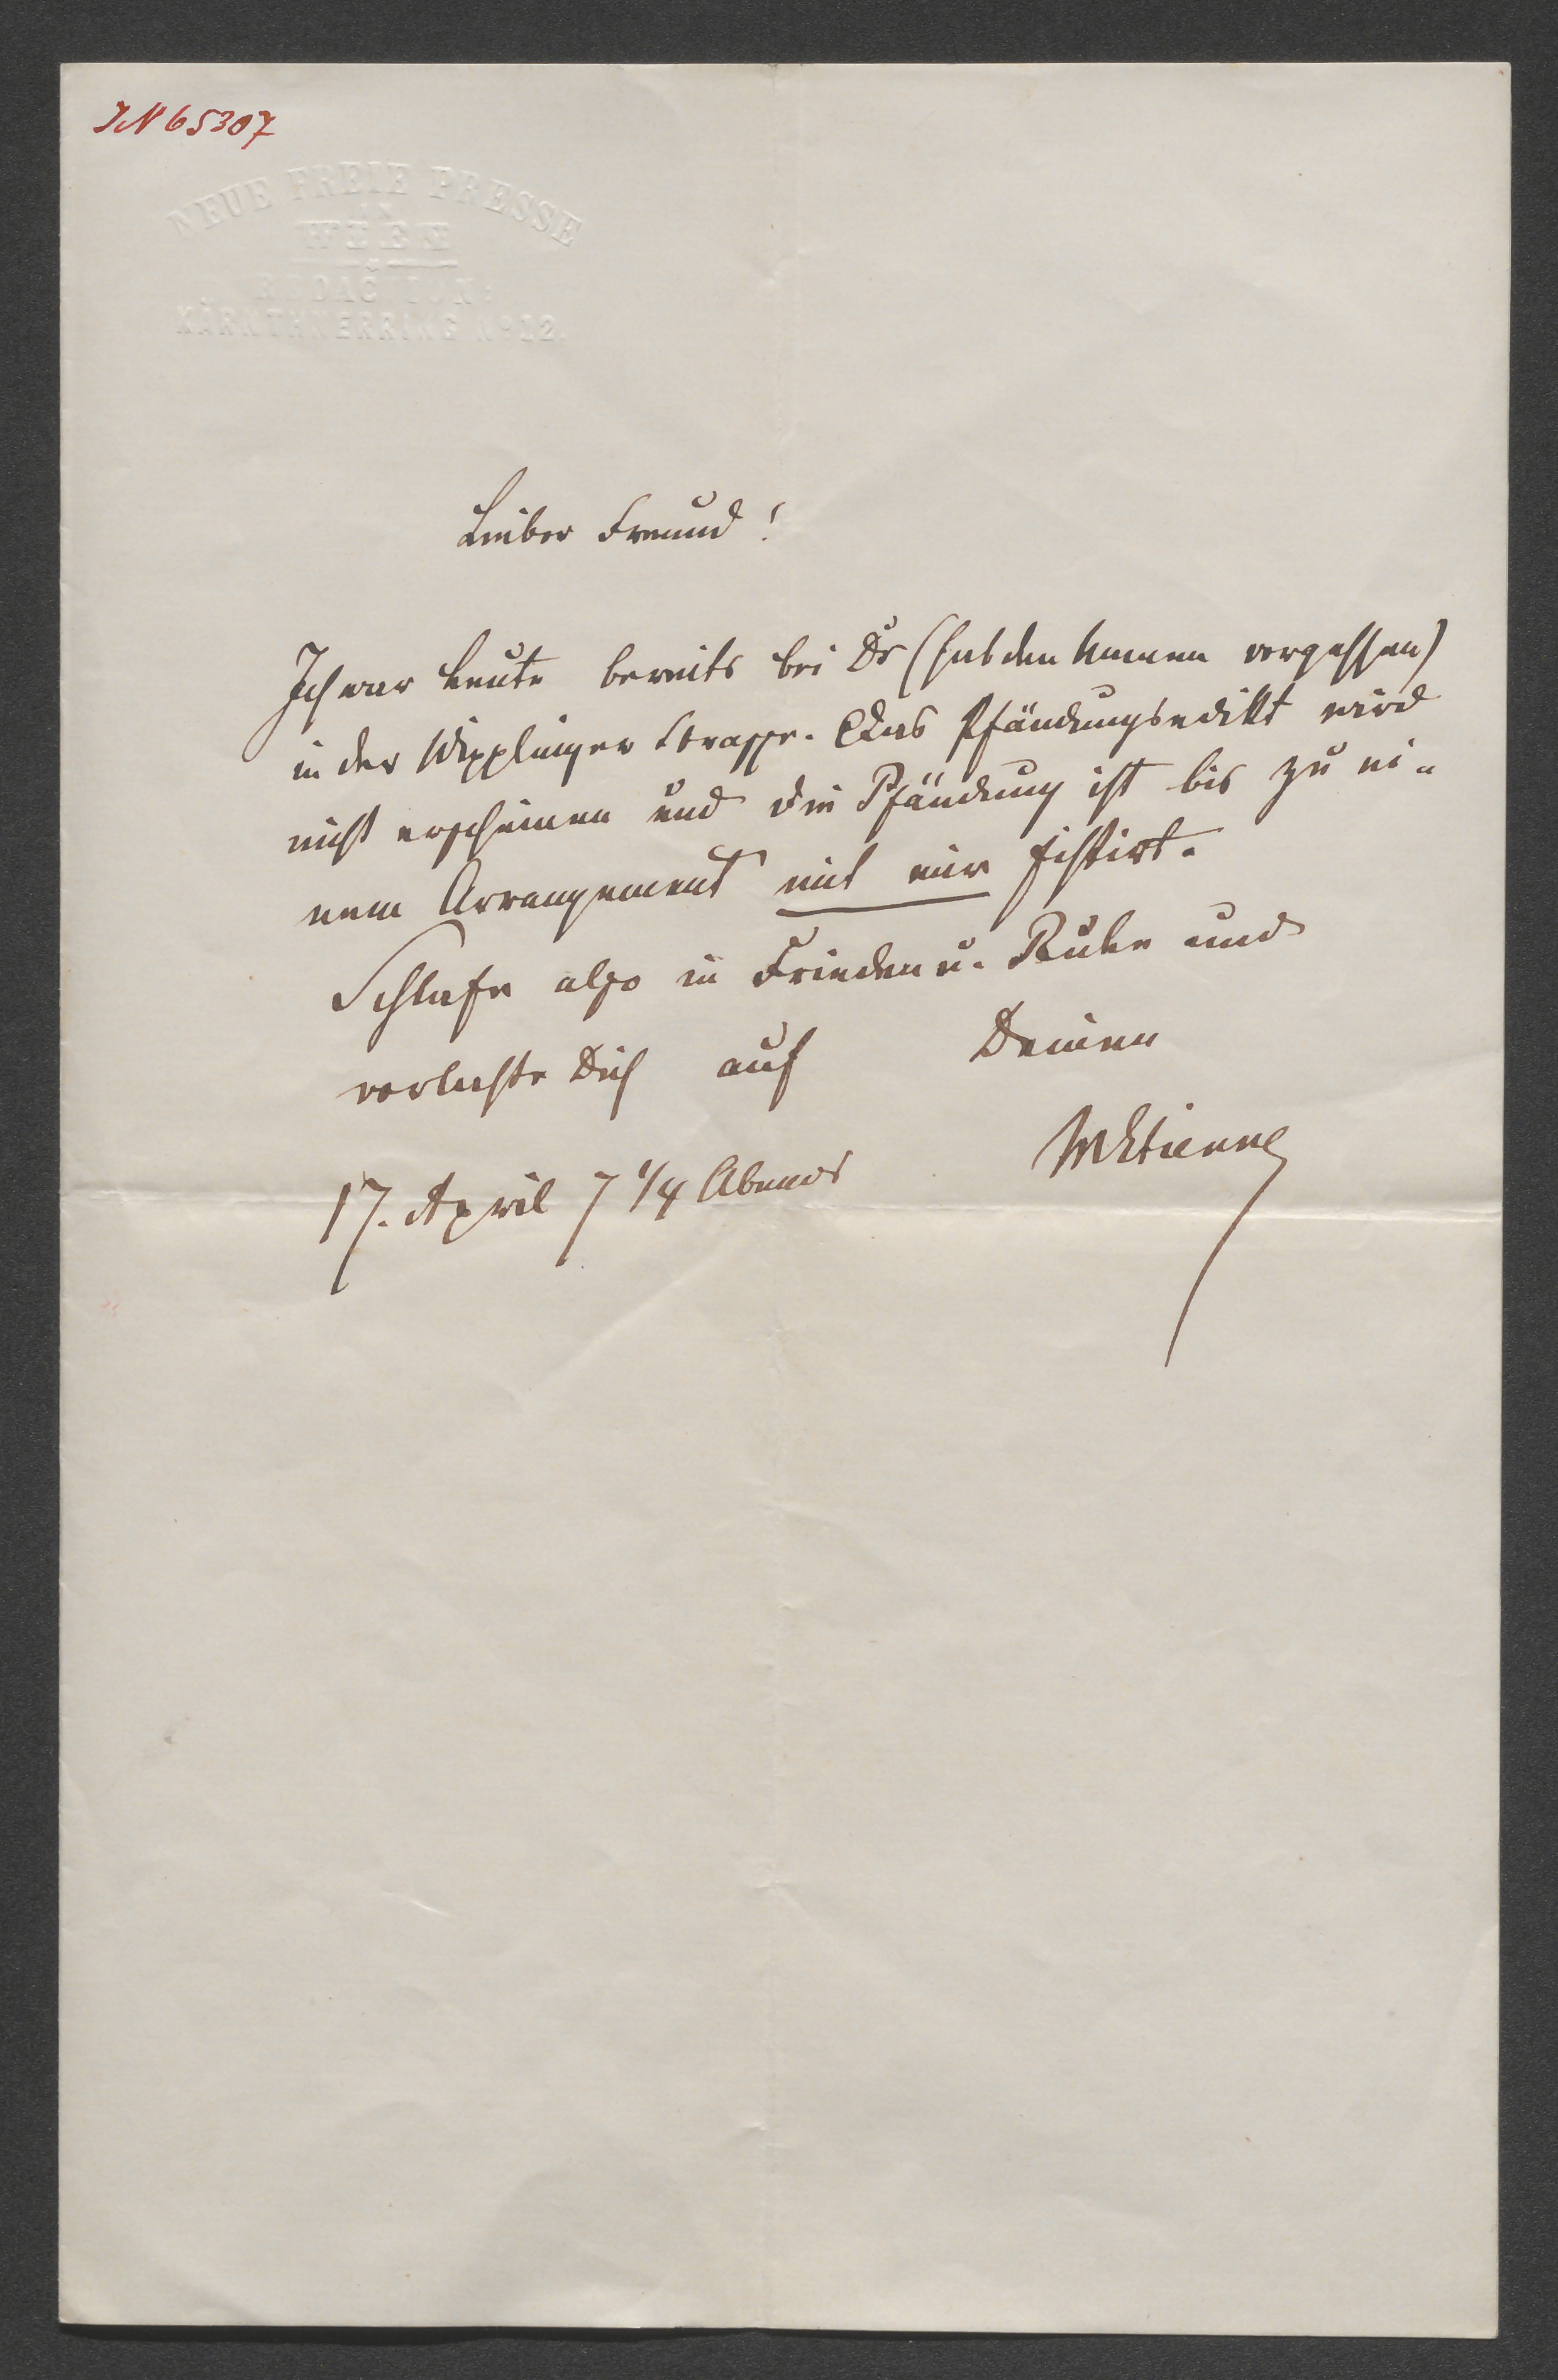 IN 65307
NEUE FREIE PRESSE
IN
WIEN
REDACTION:
KÄRNTHNERRING No 12.
Lieber Freund!
Ich war heute bereits bei Dr (hab den Namen vergessen)
in der Wipplinger Strasse. Das Pfändungsedikt wird
nicht erscheinen und die Pfändung ist bis zu ei-
nem Arrangement mit mir sistirt.
Schlafe also in Frieden u. Ruhe und
verlasse Dich auf Deinen
MEtienne
17. April 7 1/4 Abends